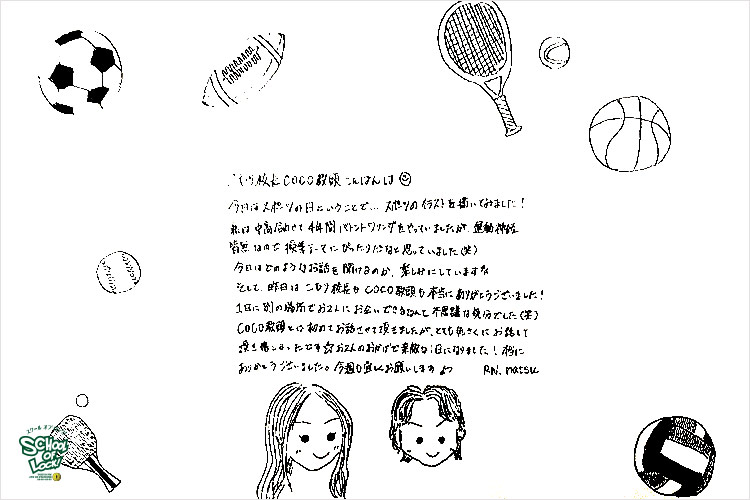 こもり校長 COCO教頭 こんばんは
今日はスポーツの日ということで… スポーツのイラストを描いてみました!
私は中高合わせて4年間バトントワリングをやっていましたが、運動神経
皆無なので授業テーマにぴったりだなと思っていました(笑)
今日はどのようなお話を聞けるのか、楽しみにしていますね
そして、昨日はこもり校長もCOCO教頭も本当にありがとうございました!
1日に別の場所でお2人にお会いできるなんて不思議な気分でした(笑)
COCO教頭とは初めてお話させて頂きましたが、とても気さくにお話して
頂き嬉しかったです☆お2人のおかげで素敵な1日になりました!本当に
ありがとうございました。今週も宜しくお願いします
RN. matsu
スクール オブ
SCHOOL OF LOCK!